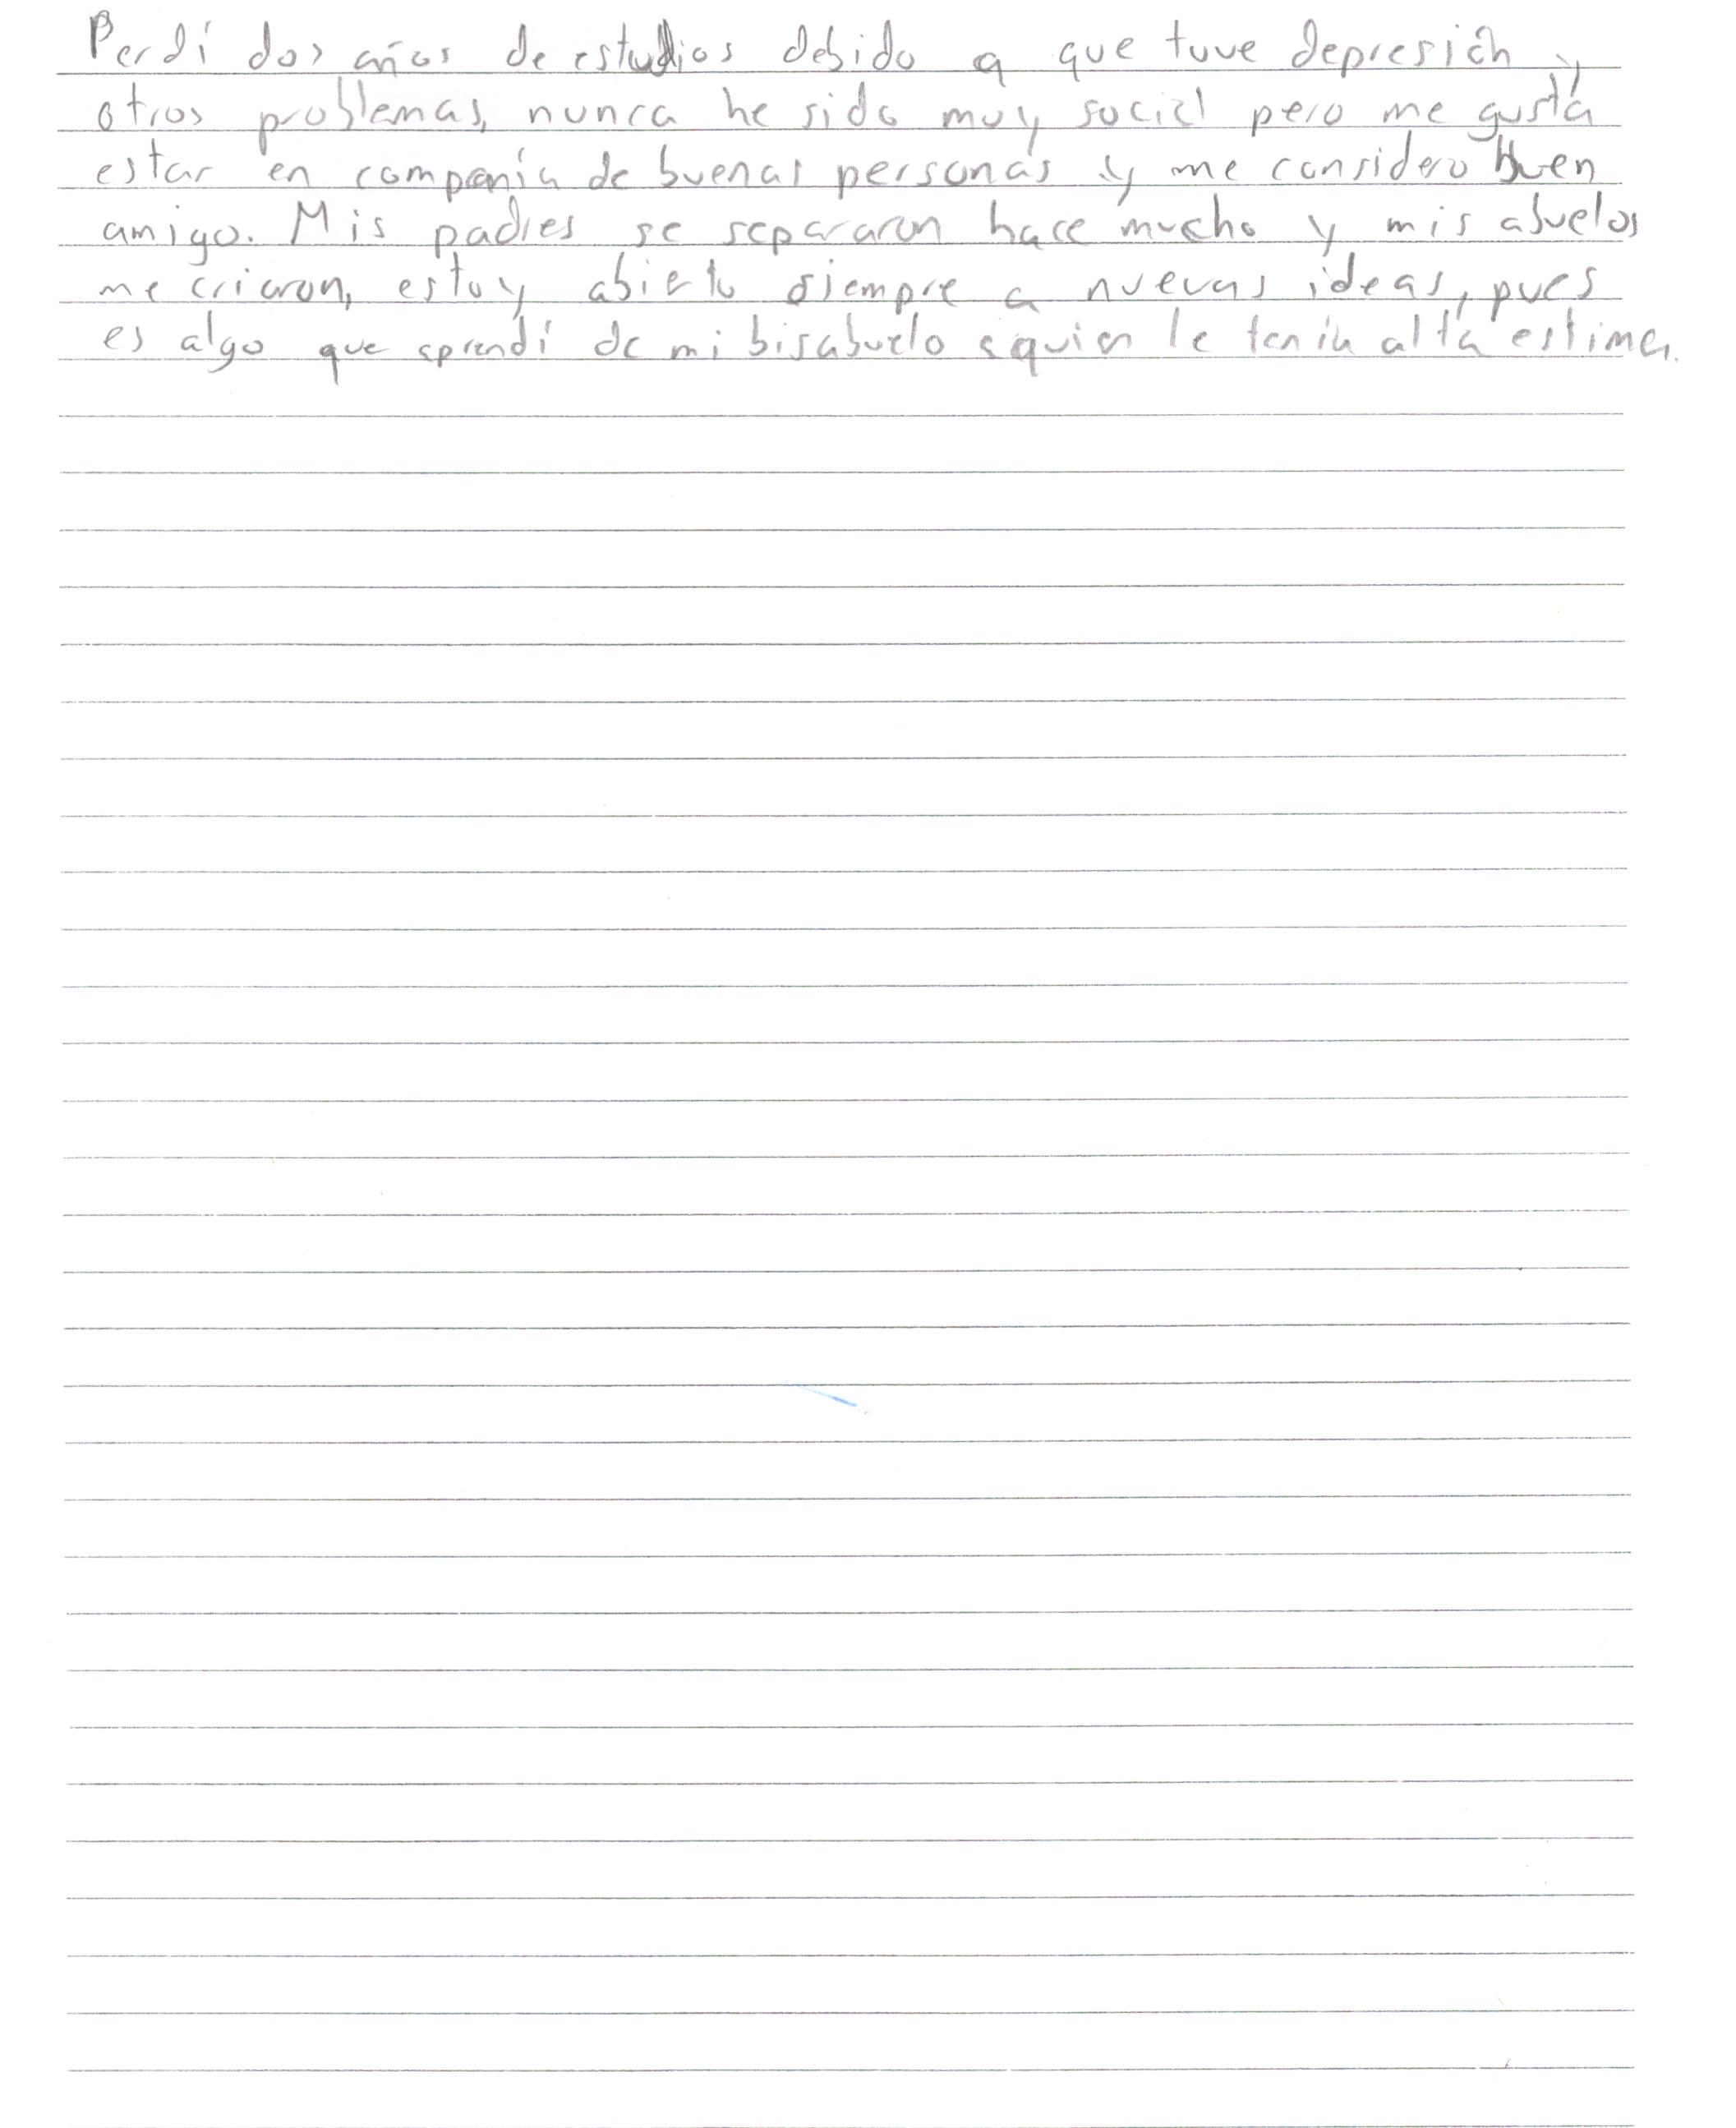 Perdí dos años de estudios debido a que tuve depresión y
otros problemas, nunca he sido muy social pero me gusta
estar en compañía de buenas personas y me considero buen
amigo. Mis padres se separaron hace mucho y mis abuelos
me criaron, estoy abierto siempre a nuevas ideas, pues
es algo que aprendí de mi bisabuelo a quien le tenía alta estima.